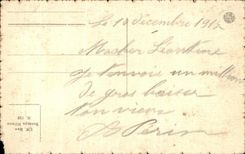 Le 18 décembre 191
Ma chère Léontine
Je t'envoie un million
de gros baiser
ton vieux
Périn